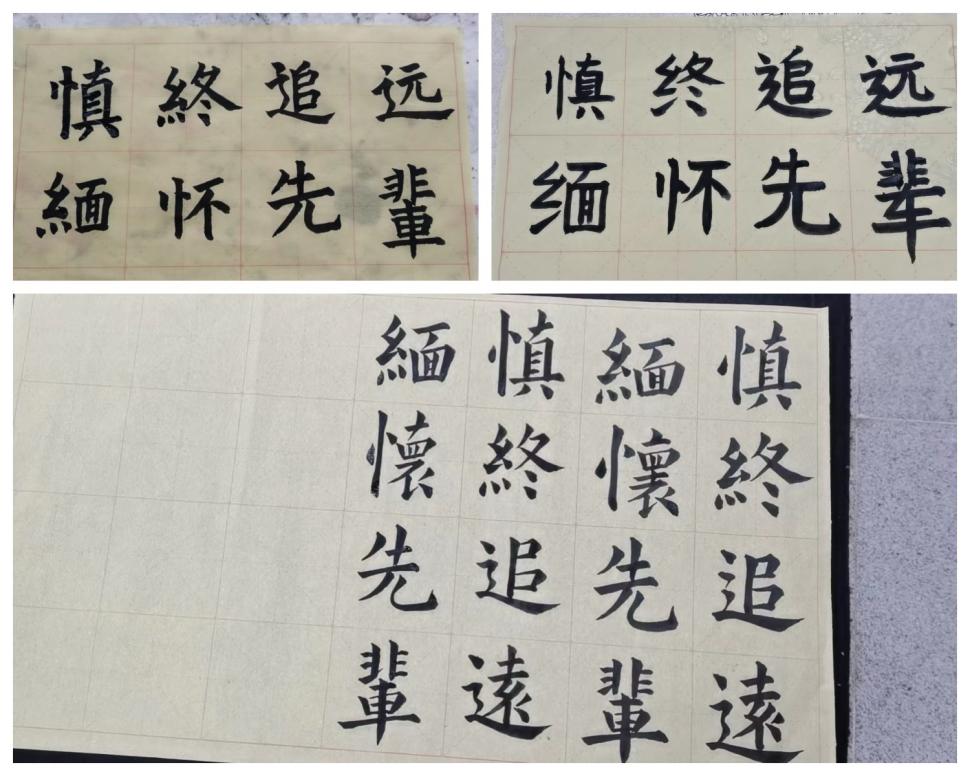 慎終追远
緬怀先輩
慎终追远
缅怀先辈
慎終追遠
緬懷先輩
慎終追遠
緬懷先輩